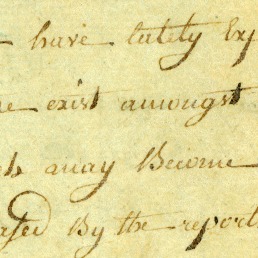 have lately Exp
exist amongst
may Become
ased By the reports